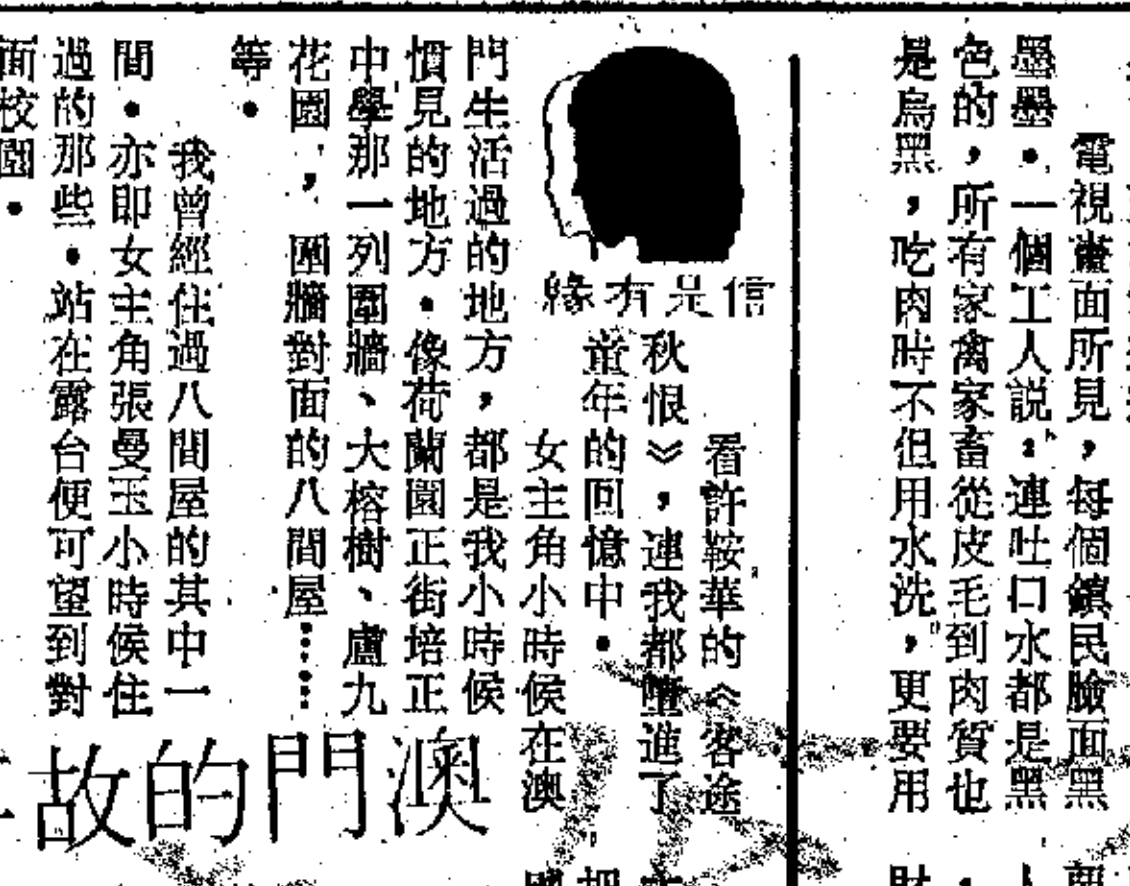 電視畫面所見，每個鎮民臉面黑
墨墨．一個工人説：連吐口水都是黑
色的，所有家禽家畜從皮毛到肉質也
是烏黑，吃肉時不但用水洗，更要用
信是有緣
看許鞍華的《客途
秋恨》，連我都墮進了
童年的回憶中．
女主角小時候在澳
門生活過的地方，都是我小時候
慣見的地方．像荷蘭園正街培正
中學那一列圍牆、大榕樹、盧九
花園，圍牆對面的八間屋……
等．
我曾經住過八間屋的其中一
間．亦即女主角張曼玉小時候住
過的那些．站在露台便可望到對
面校園．
澳門的故